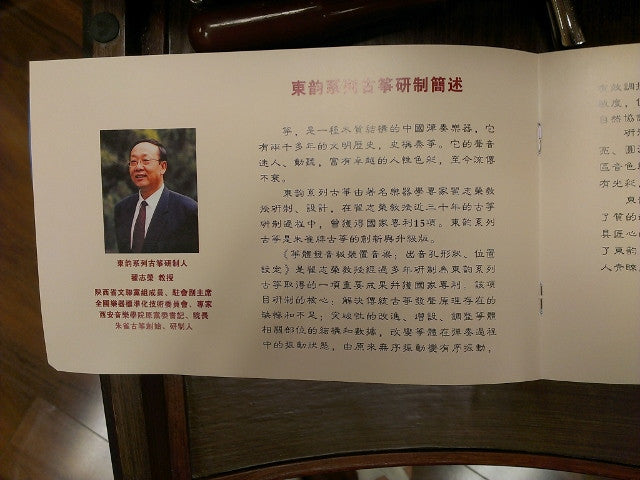 東韵系列古箏研制簡述
箏，是一種木質結構的中國彈奏樂器，它
有兩千多年的文明歷史，史稱秦箏。它的聲音
迷人、動聽，富有卓越的人性色彩，至今流傳
不衰。
東韵系列古箏由著名樂器學專家翟志榮教
授研制、設計，在翟志榮教授近三十年的古箏
研制過程中，曾獲得國家專利15項。東韵系列
古箏是朱雀牌古箏的創新與升級版。
《箏體發音板裝置音換；出音孔形狀、位置
設定》是翟志榮教授經過多年研制為東韵系列
古箏取得的一項重要成果并獲國家專利。該項
目研制的核心：解決傳統古箏發聲原理存在的
缺憾和不足；突破性的改進、增設、調整箏體
相關部位的結構和數據，改變箏體在彈奏過程
中的振動狀態，由原來無序振動變有序振動，
東韵系列古箏研制人
翟志榮 教授
陝西省文聯黨組成員、駐會副主席
全國樂器標準化技術委員會、專家
西安音樂學院原黨委書記、院長
朱雀古箏創始、研制人
有效調
敏度，
自然協調
研
亮、圓
區音色
有光彩
東
了質的
具匠心的
了東韵
人青睞